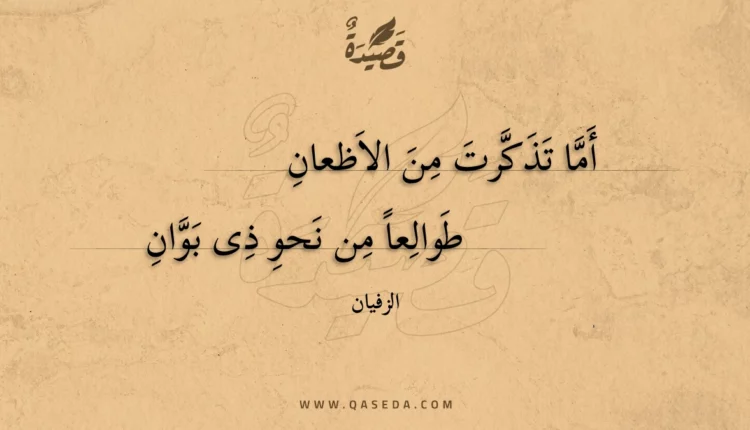 قَصِيدَةٌ
أَمَّا تَذَكَّرتَ مِنَ الاَظعانِ
طَوالِعاً مِن نَحوِ ذِى بَوَّانِ
الزفيان
WWW.QASEDA.COM